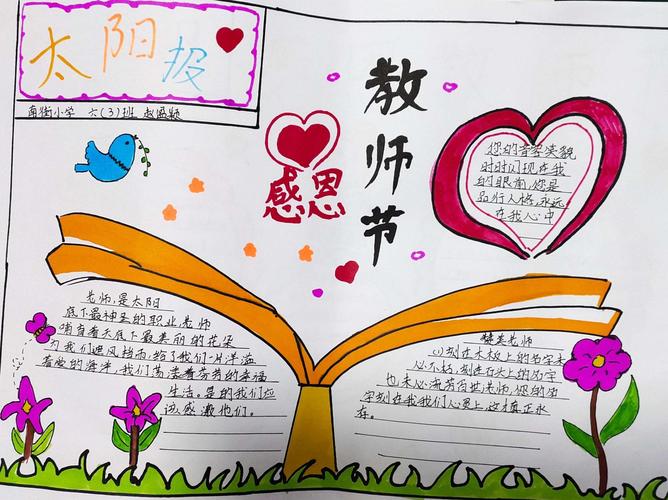 太阳报
南街小学 六(3)班 赵
感恩
教师节
您的音容笑貌
时时闪现在我
的眼前,您是
品行人格,永远
在我心中
老师,是太阳
底下最神圣的职业老师
哺育着天底下最美丽的花朵
为我们遮风挡雨,给了我们一片洋溢
着爱的海洋,我们荡漾着芬芳的幸福
生活。是的我们应
该感激他们。
赞美老师
(1)刻在木板上的名字未
必不朽,刻在石头上的名字
也未必流芳百世,老师,您的名
字刻在我我们心灵上,这才真正永
存。